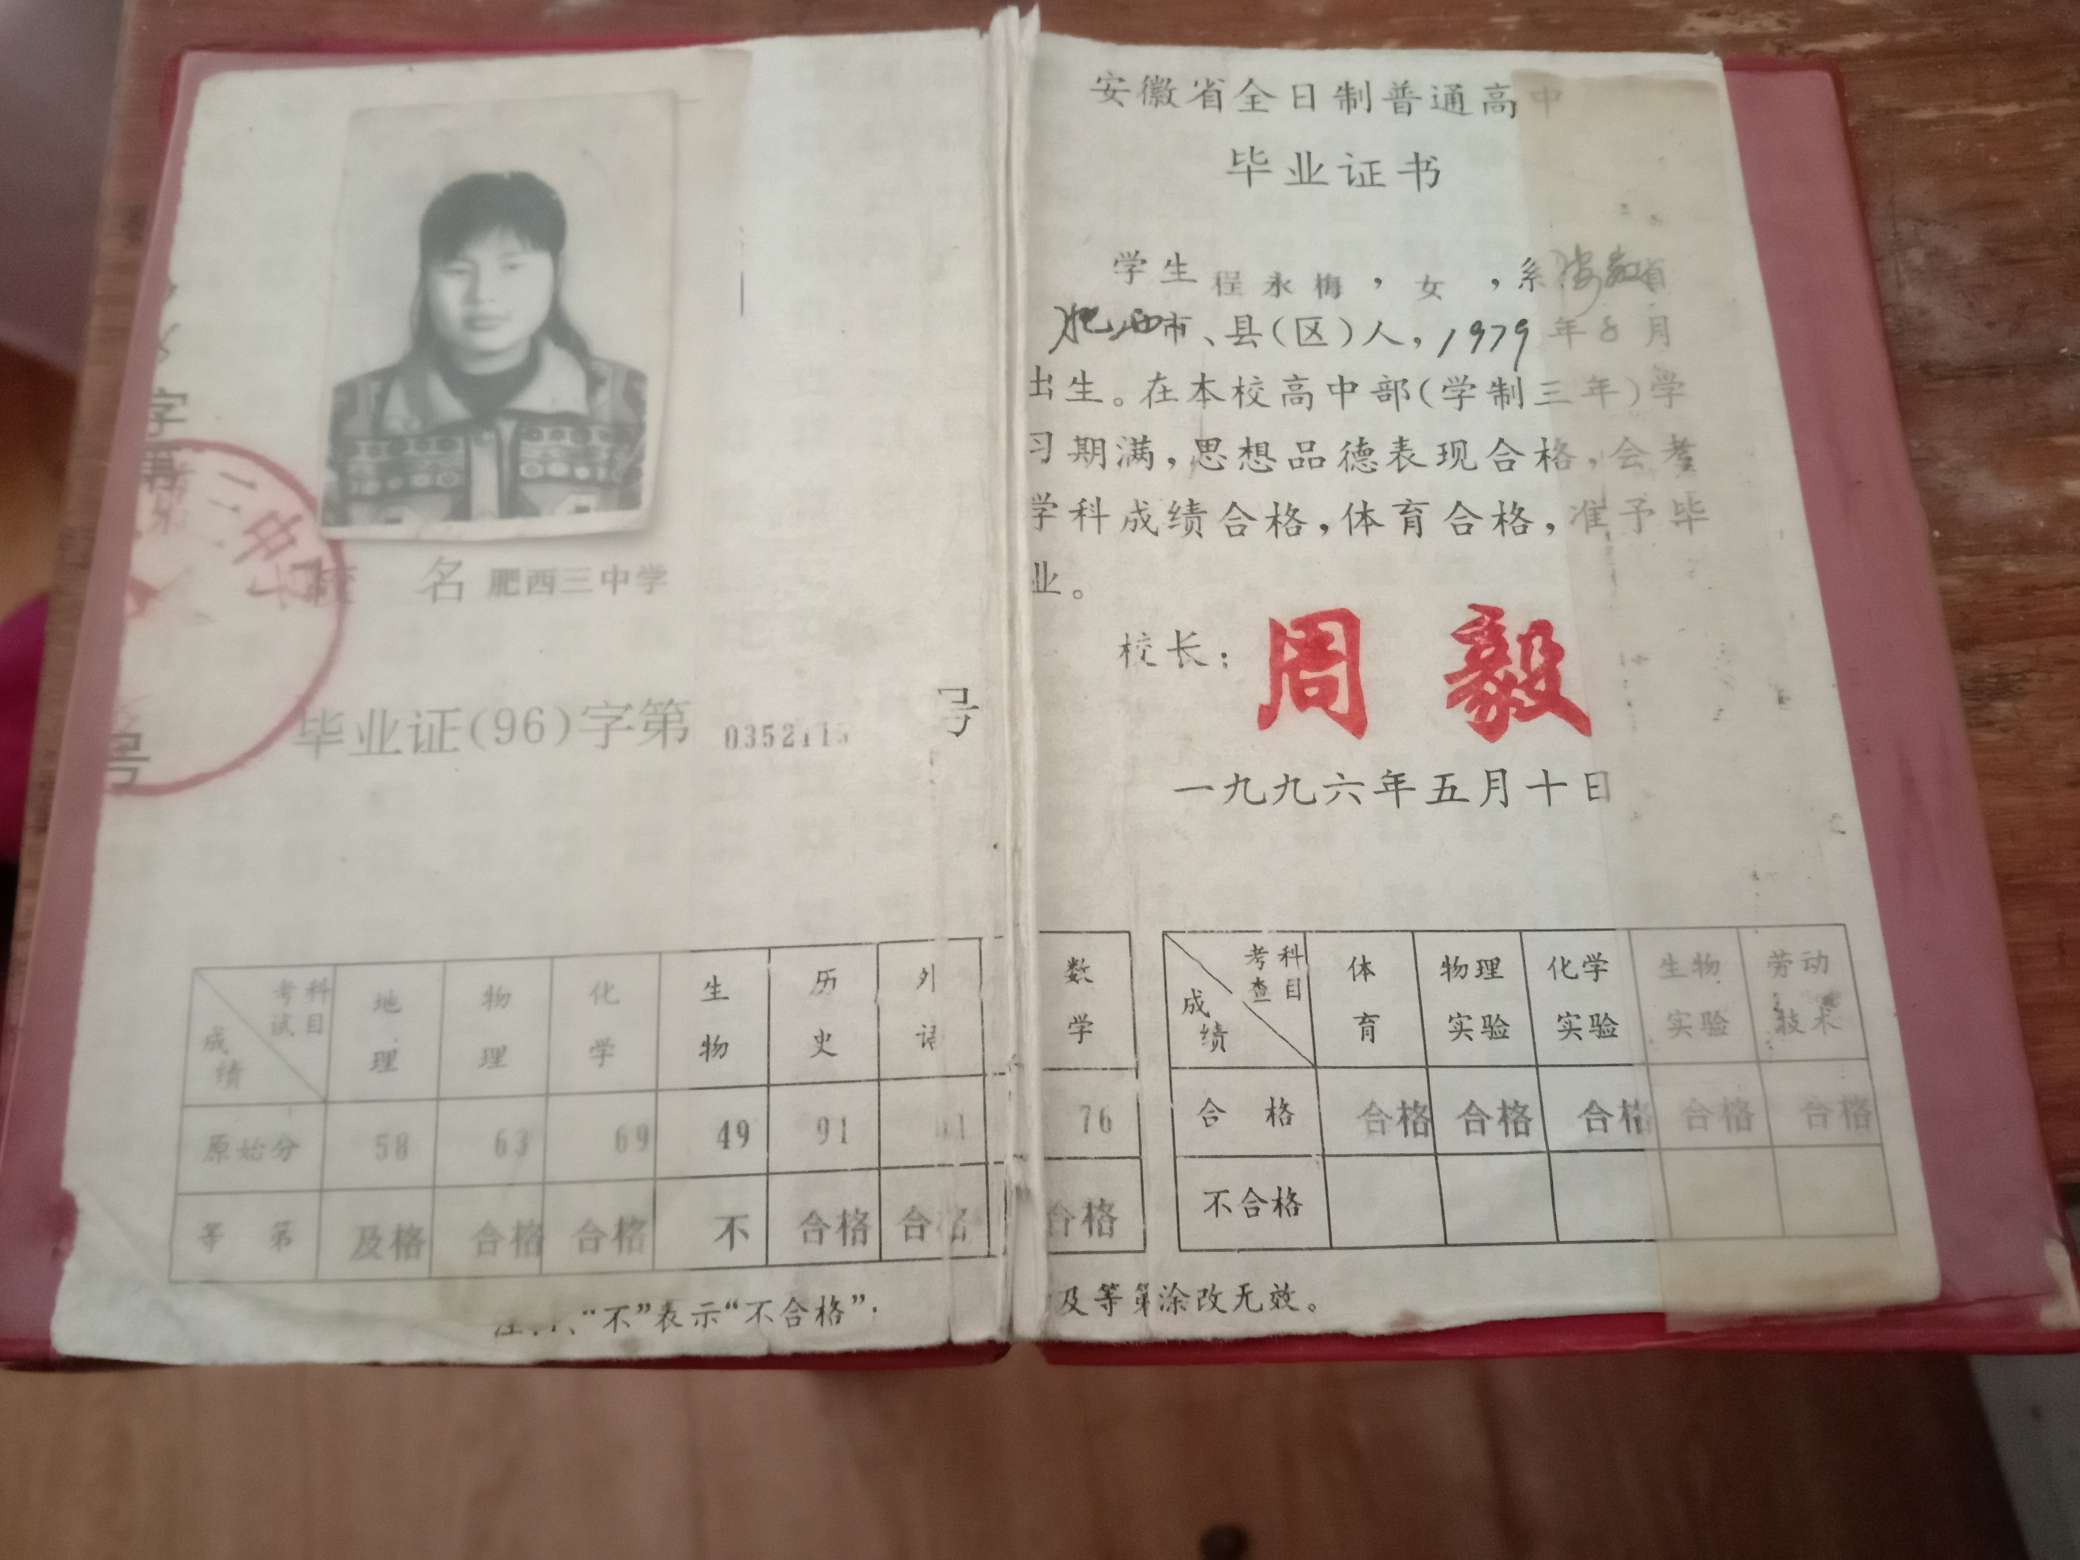 字第
号
三中学
校 名 肥西三中学
毕业证(96)字第 号
考试科目 地理 物理 化学 生物 历史 外语 数学
成绩
原始分 58 63 69 49 91 76
等第 及格 合格 合格 不 合格 合格 合格
“不”表示“不合格”. 及等第涂改无效。
安徽省全日制普通高中
毕业证书
学生程永梅，女，系安徽省
肥西市、县(区)人，1979年8月
出生。在本校高中部(学制三年)学
习期满，思想品德表现合格，会考
学科成绩合格，体育合格，准予毕
业。
校长：周毅
一九九六年五月十日
考查科目 体育 物理实验 化学实验 生物实验 劳动技术
成绩
合格 合格 合格 合格 合格 合格
不合格